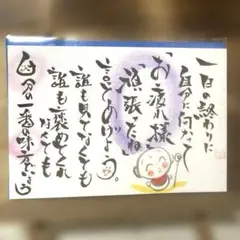 一日の終わりに
自分に向かって
「お疲れ様」
「頑張ったね」
言ってあげよう。
誰も見てなくても
誰も褒めてくれ
なくても
自分の一番の味方でいよう